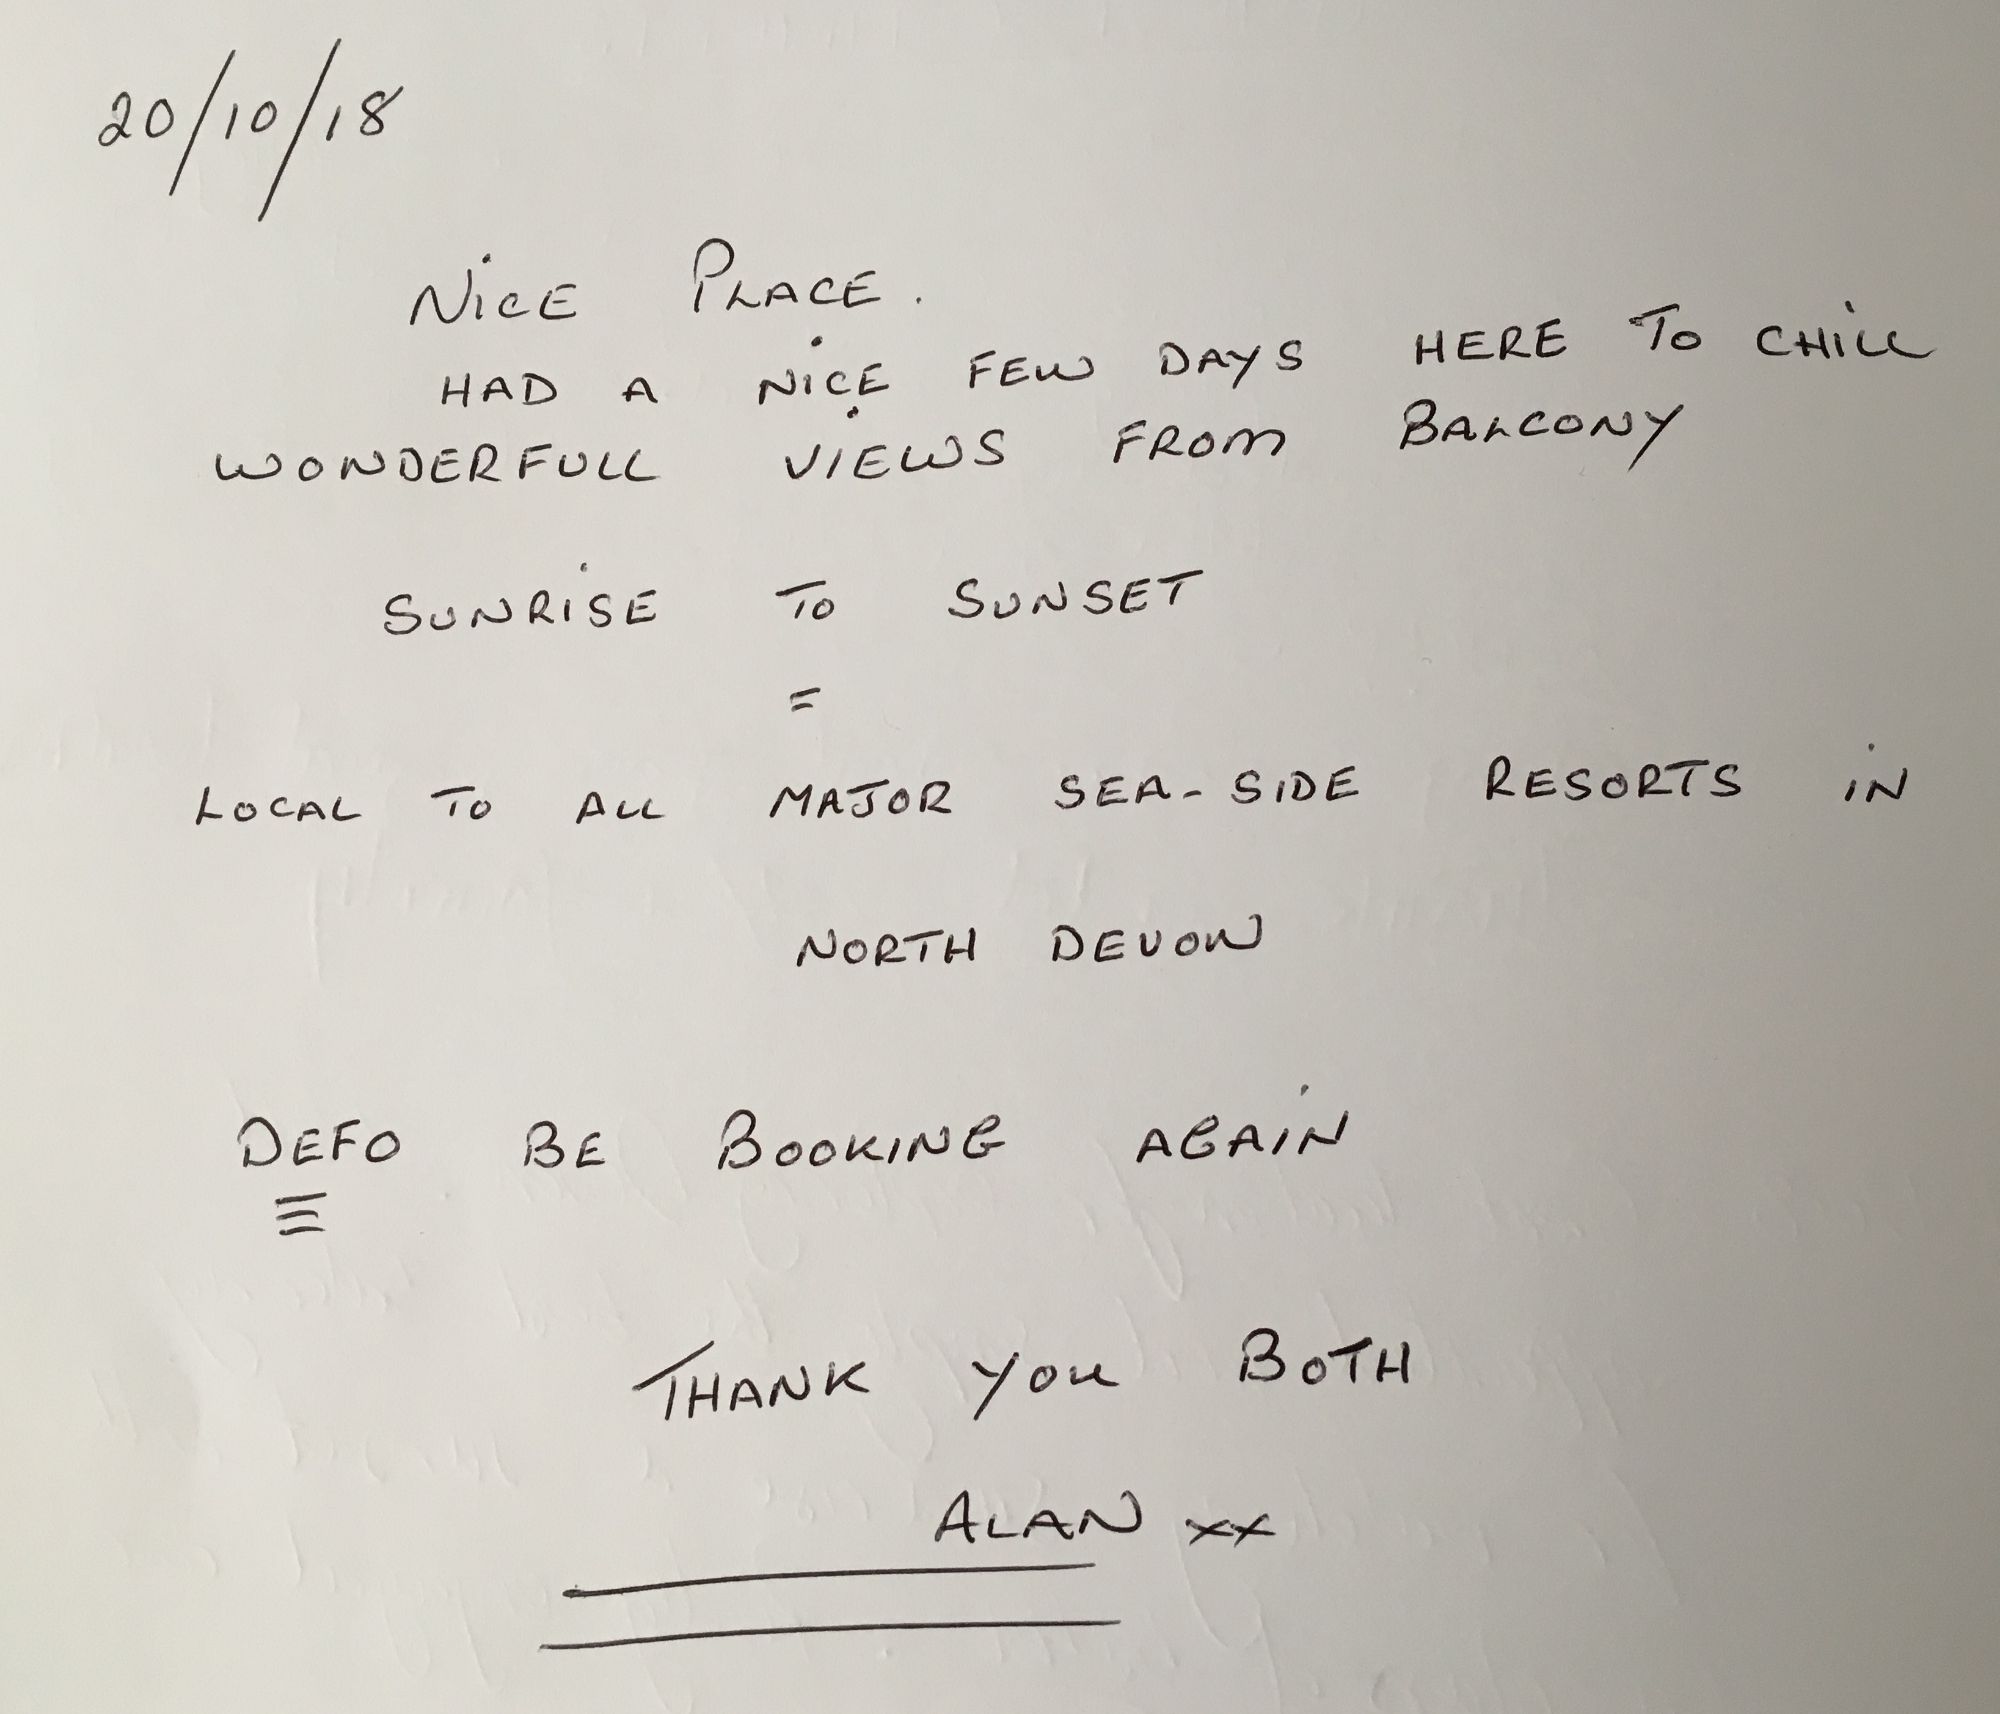 20/10/18
NicE PLACE.
HAD A NiCE FEW DAYS HERE To CHiLL
WONDERFULL ViEWS FROM BALCONY
SUNRiSE To SUNSET
=
LOCAL To ALL MAJOR SEA-SIDE RESORTS iN
NORTH DEVON
DEFO BE BOOKING AGAiN
THANK YOU BOTH
ALAN xx